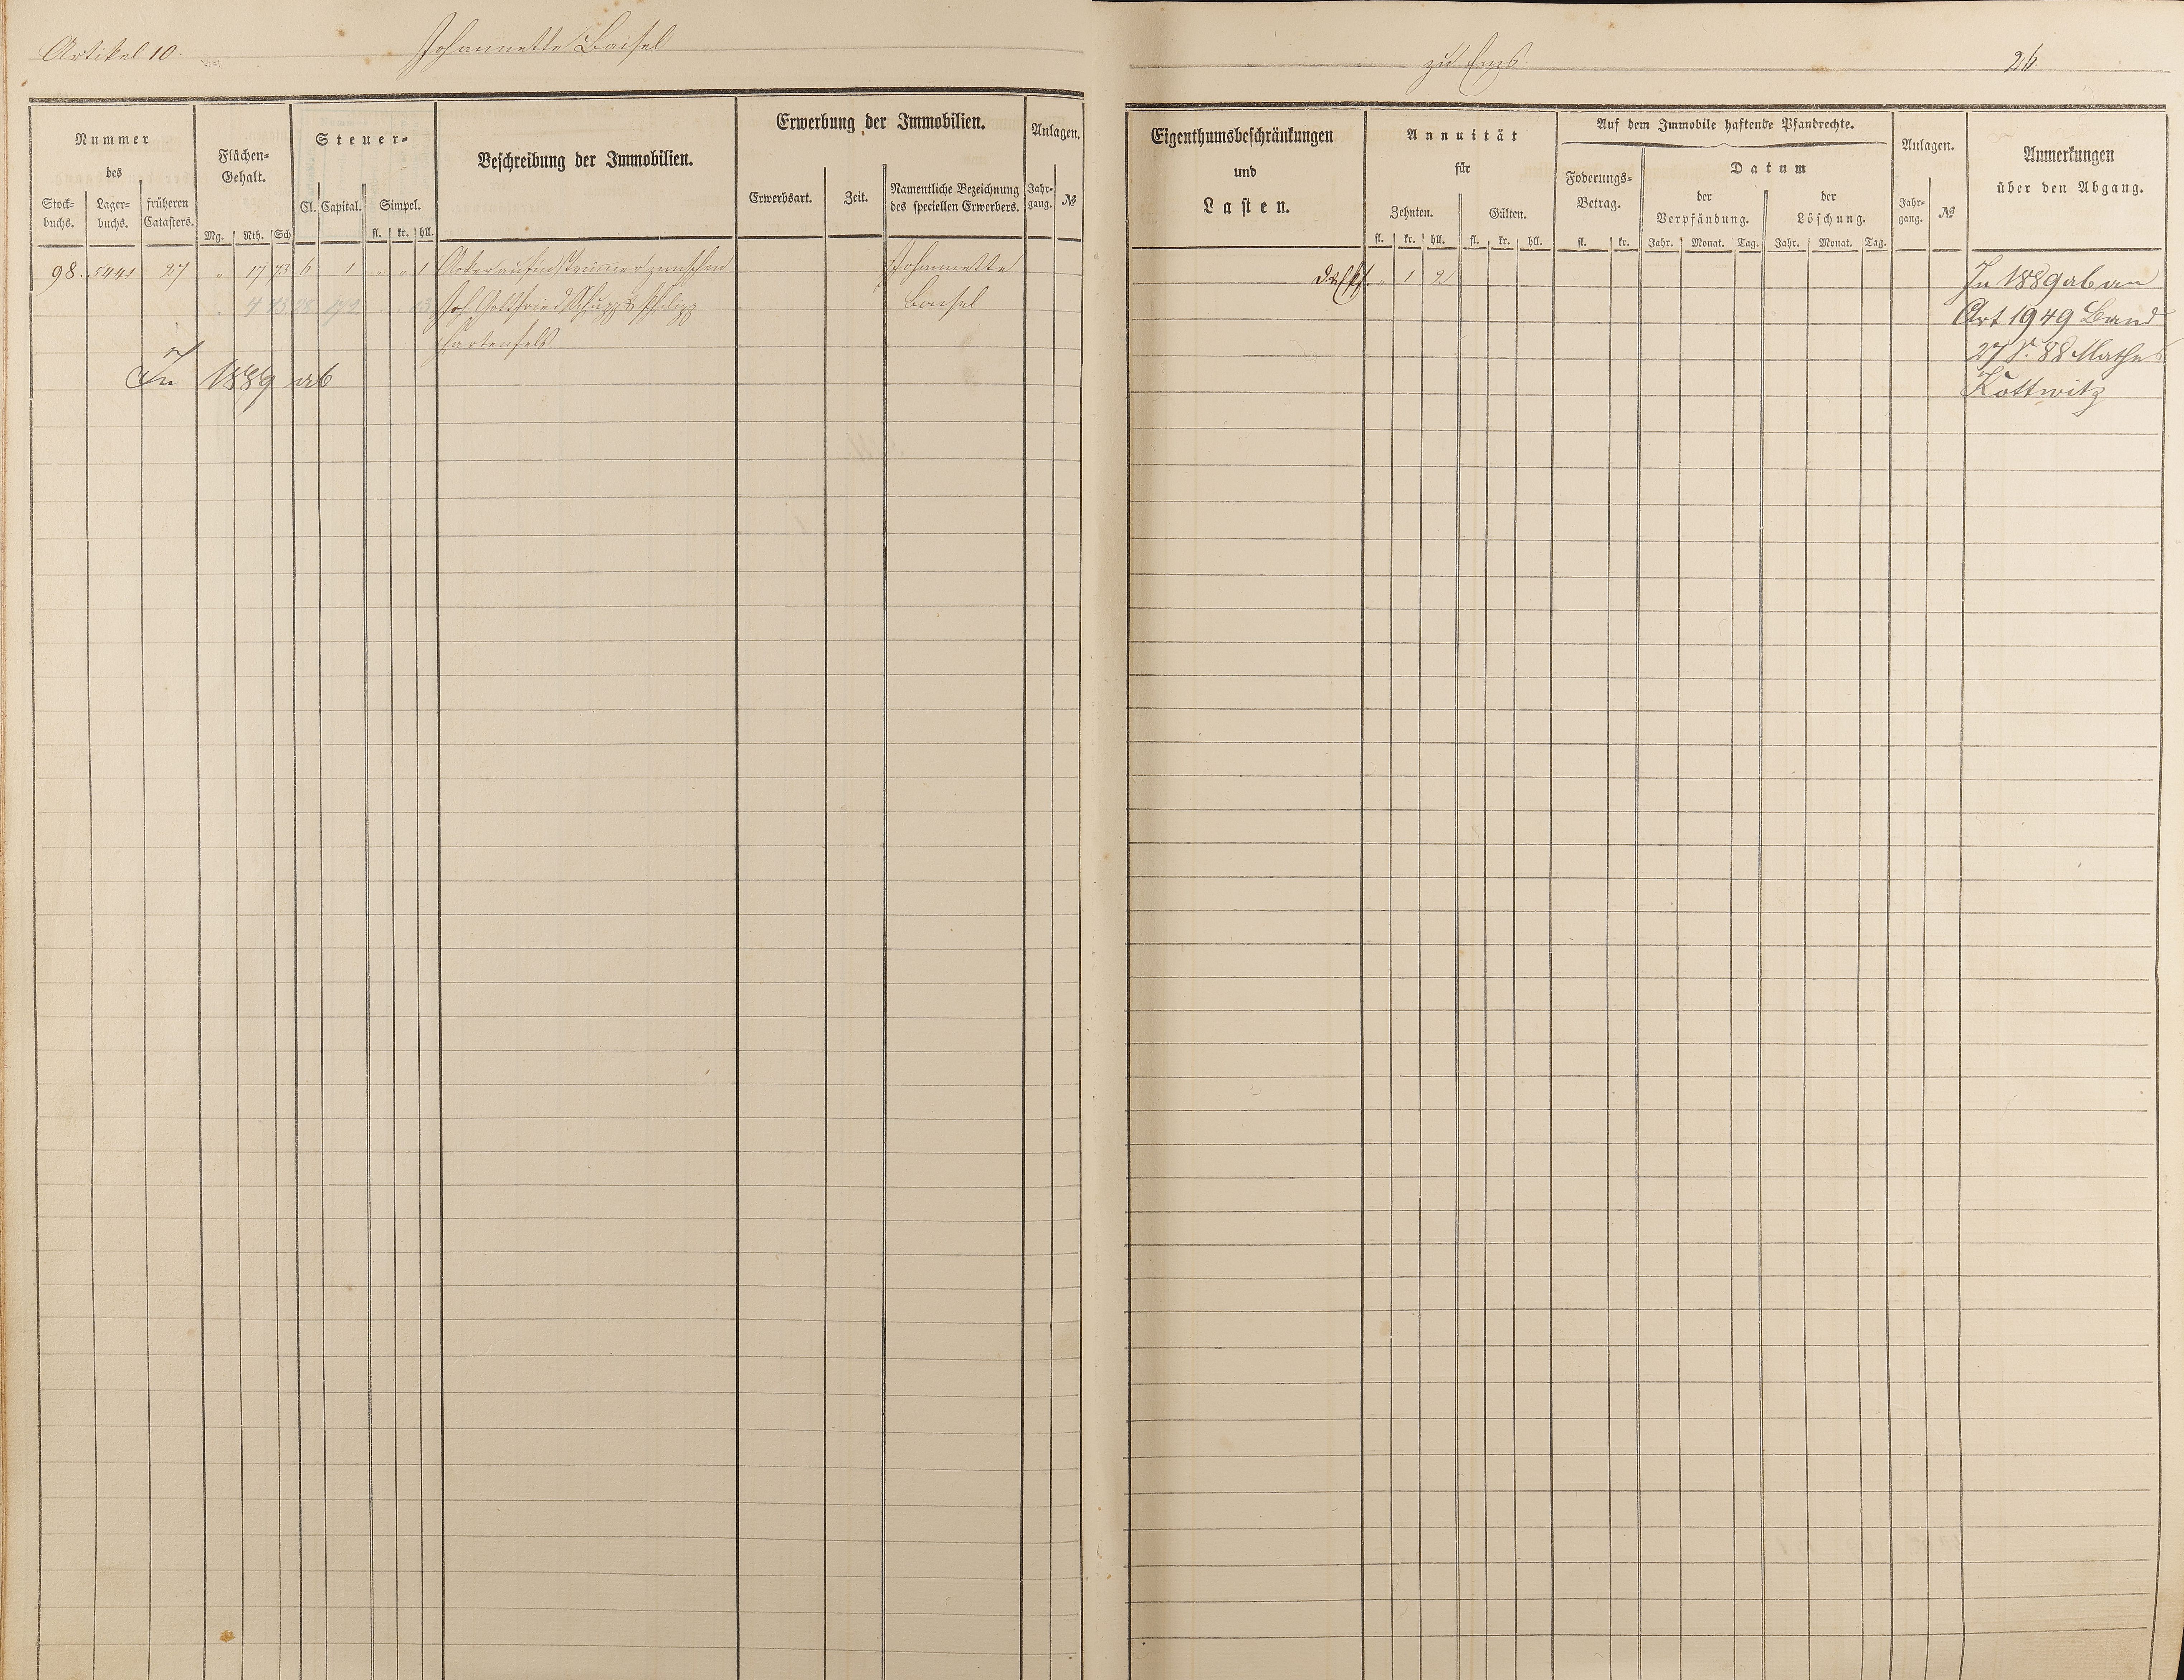 Artikel 10. Johannette Baisel
Nummer
des
Stock-
buchs.
Lager-
buchs.
früheren
Catasters.
Flächen-
Gehalt.
Mg. Rth. Sch
Steuer-
Cl. Capital. Simpel.
fl. kr. hll.
Beschreibung der Immobilien.
Erwerbung der Immobilien.
Erwerbsart. Zeit.
Namentliche Bezeichnung
des speciellen Erwerbers.
Anlagen.
Jahr-
gang.
№
98. 5441 27 " 17 73 6 1 " " 1 Acker zwischen Johannette
Joh. Gottfried Schupp & Philipp Baisel
Hartenfels
In 1889 ab
zu Ems 26.
Eigenthumsbeschränkungen
und
Lasten.
Annuität
für
Zehnten. Gülten.
fl. kr. hll. fl. kr. hll.
Auf dem Immobile haftende Pfandrechte.
Foderungs-
Betrag.
fl. kr.
Datum
der
Verpfändung.
der
Löschung.
Jahr. Monat. Tag. Jahr. Monat. Tag.
Anlagen.
Jahr-
gang.
№
Anmerkungen
über den Abgang.
" 1 2
In 1889 ab an
Art 1949 Band
27 S. 88 Mathes
Kottwitz